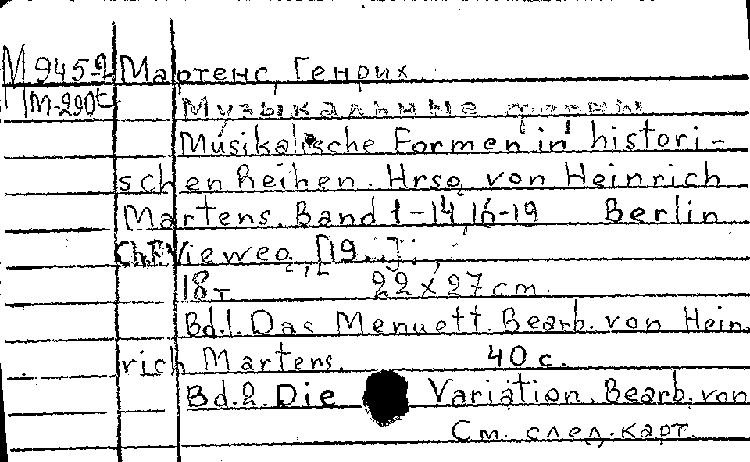 М945-2 Мартенс, Генрих
М-290с Музыкальные формы
Musikalische Formen in histori-
schen Reihen. Hrsg. von Heinrich
Martens. Band 1-14, 16-19 Berlin
Ch. F. Vieweg, [19..];
18т 22x27 cm.
Bd.1. Das Menuett. Bearb. von Hein
rich Martens. 40 с.
Bd.2. Die Variation. Bearb. von
См. след. карт.